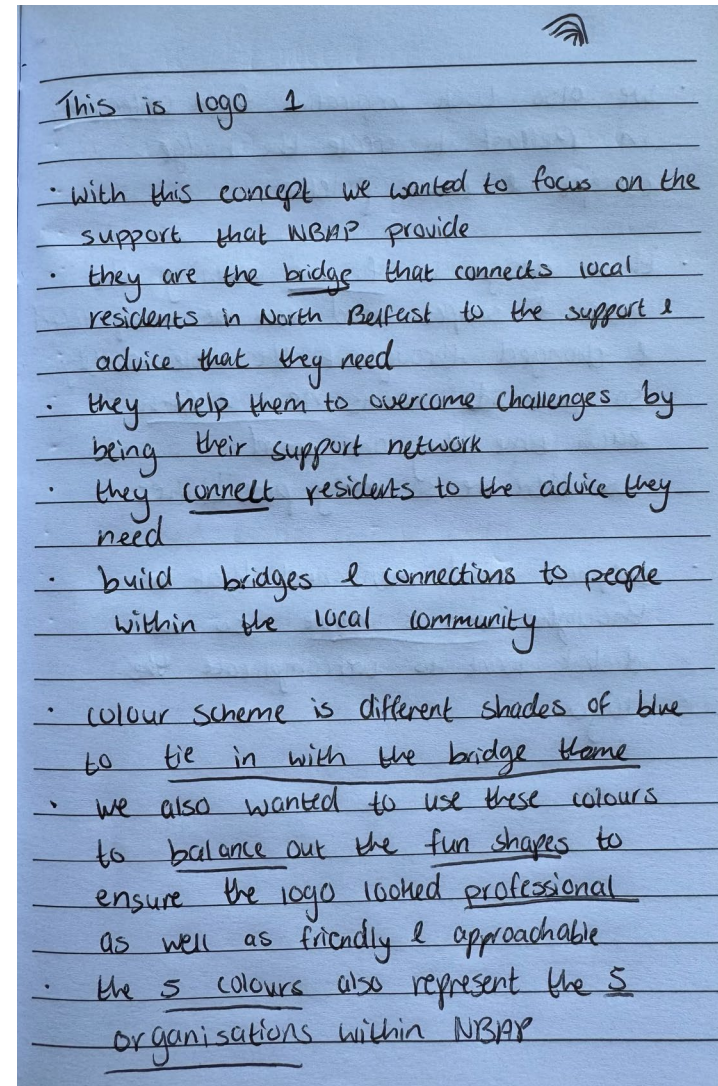 This is logo 1
· with this concept we wanted to focus on the
support that NBAP provide
· they are the bridge that connects local
residents in North Belfast to the support &
advice that they need
· they help them to overcome challenges by
being their support network
· they connect residents to the advice they
need
· build bridges & connections to people
within the local community
· colour scheme is different shades of blue
to tie in with the bridge theme
· we also wanted to use these colours
to balance out the fun shapes to
ensure the logo looked professional
as well as friendly & approachable
· the 5 colours also represent the 5
organisations within NBAP